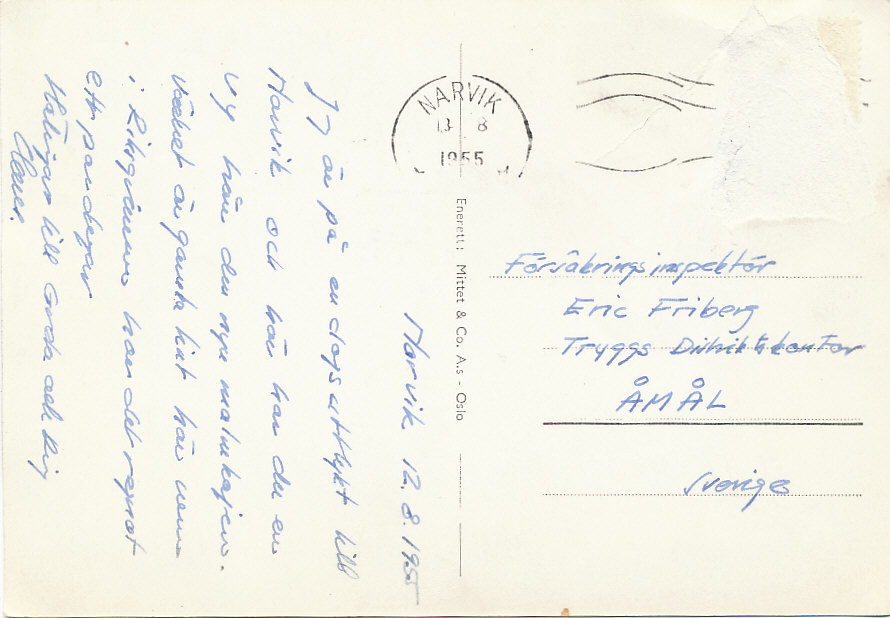 Narvik 12.8.1955
Jag är på en dagsutflykt till
Narvik och här har du en
vy från den nya malmkajen.
Vädret är ganska fint här men
i Riksgränsen har det regnat
ett par dagar
Hälsningar till Gerda och Dig
NARVIK
13 8
1955
Enerett: Mittet & Co. A.s - Oslo
Försäkringsinspektör
Eric Friberg
Tryggs Distriktskontor
ÅMÅL
Sverige